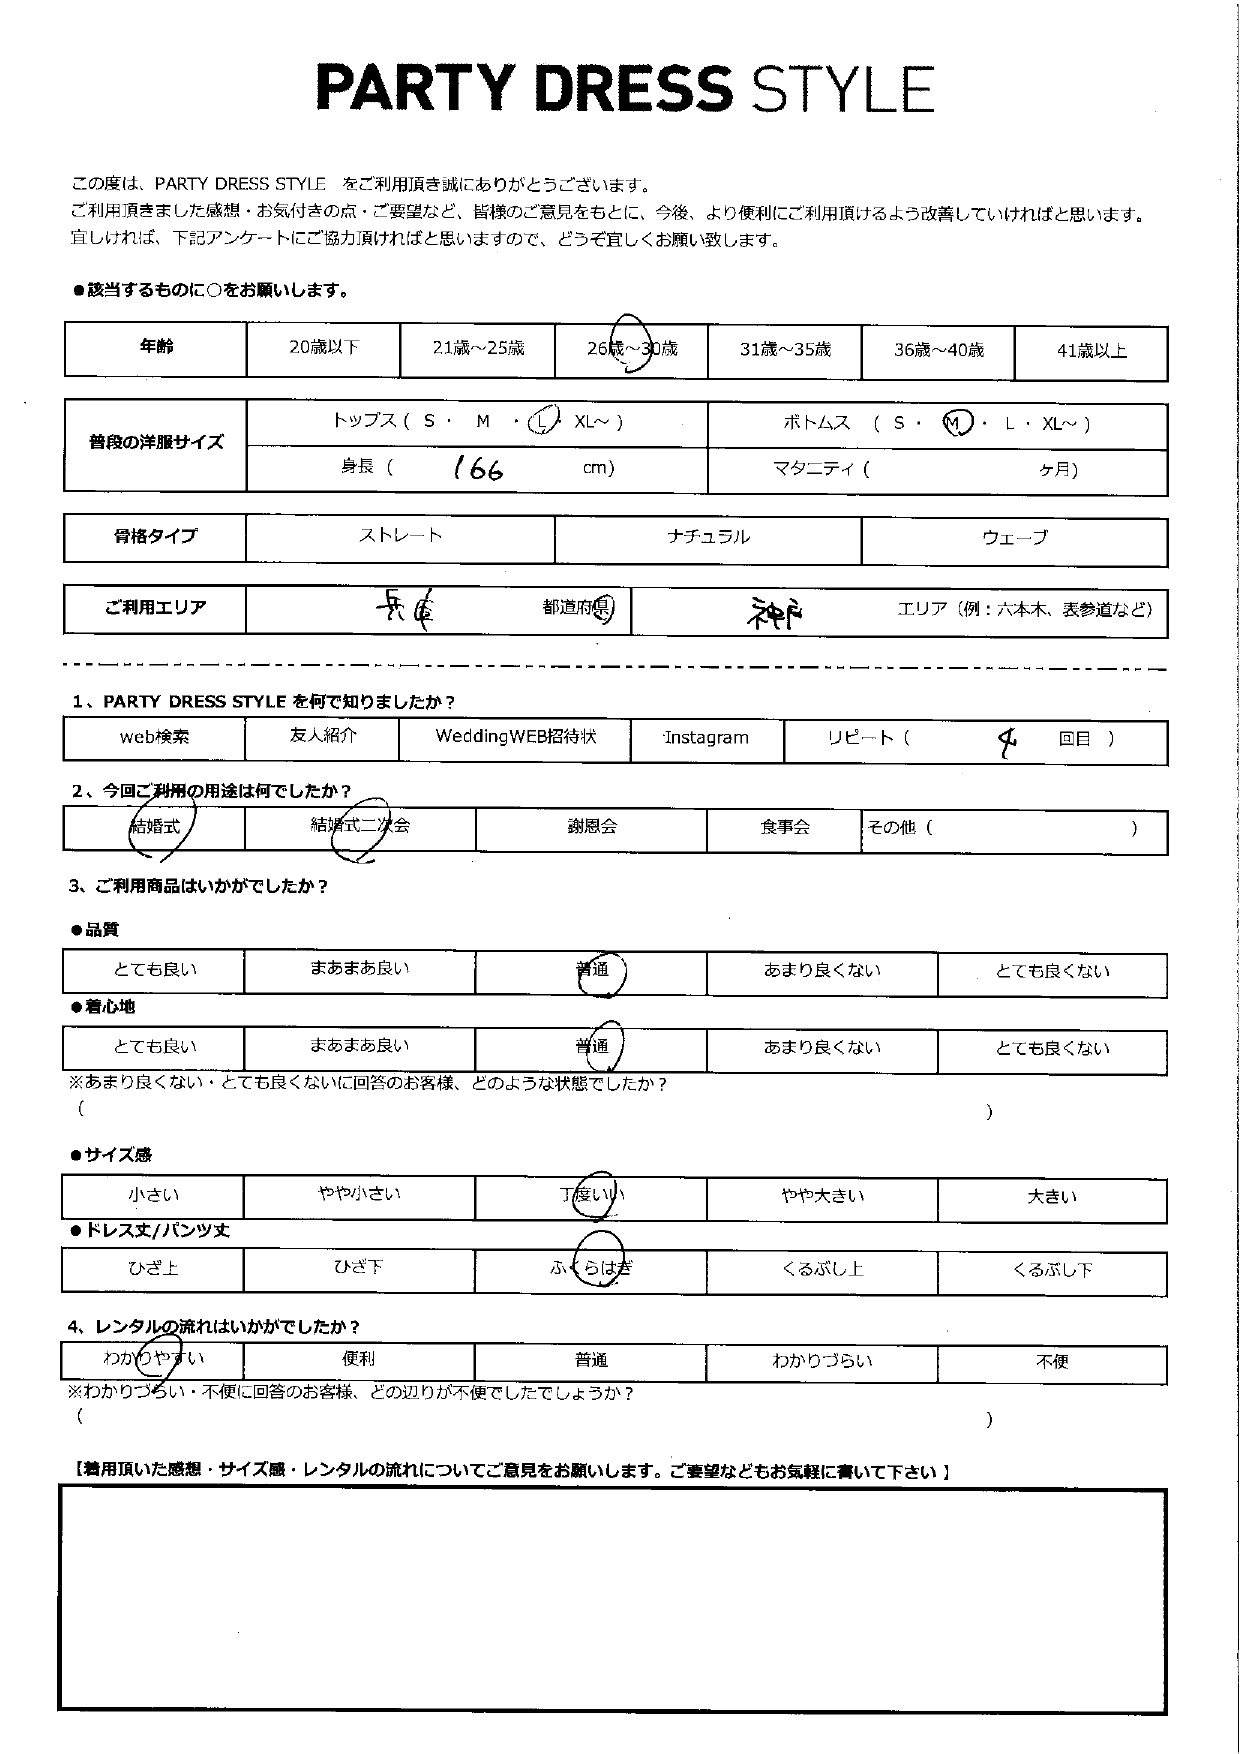 PARTY DRESS STYLE
この度は、PARTY DRESS STYLE をご利用頂き誠にありがとうございます。
ご利用頂きました感想・お気付きの点・ご要望など、皆様のご意見をもとに、今後、より便利にご利用頂けるよう改善していければと思います。
宜しければ、下記アンケートにご協力頂ければと思いますので、どうぞ宜しくお願い致します。
●該当するものに○をお願いします。
年齢 20歳以下 21歳～25歳 26歳～30歳 31歳～35歳 36歳～40歳 41歳以上
普段の洋服サイズ トップス ( S ・ M ・ L ・ XL～ ) ボトムス ( S ・ M ・ L ・ XL～ )
身長 ( 166 cm) マタニティ ( ヶ月)
骨格タイプ ストレート ナチュラル ウェーブ
ご利用エリア 兵庫 都道府県 神戸 エリア（例：六本木、表参道など）
1、PARTY DRESS STYLE を何で知りましたか？
web検索 友人紹介 WeddingWEB招待状 Instagram リピート ( 4 回目 )
2、今回ご利用の用途は何でしたか？
結婚式 結婚式二次会 謝恩会 食事会 その他 ( )
3、ご利用商品はいかがでしたか？
●品質
とても良い まあまあ良い 普通 あまり良くない とても良くない
●着心地
とても良い まあまあ良い 普通 あまり良くない とても良くない
※あまり良くない・とても良くないに回答のお客様、どのような状態でしたか？
( )
●サイズ感
小さい やや小さい 丁度いい やや大きい 大きい
●ドレス丈/パンツ丈
ひざ上 ひざ下 ふくらはぎ くるぶし上 くるぶし下
4、レンタルの流れはいかがでしたか？
わかりやすい 便利 普通 わかりづらい 不便
※わかりづらい・不便に回答のお客様、どの辺りが不便でしたでしょうか？
( )
【着用頂いた感想・サイズ感・レンタルの流れについてご意見をお願いします。ご要望などもお気軽に書いて下さい 】